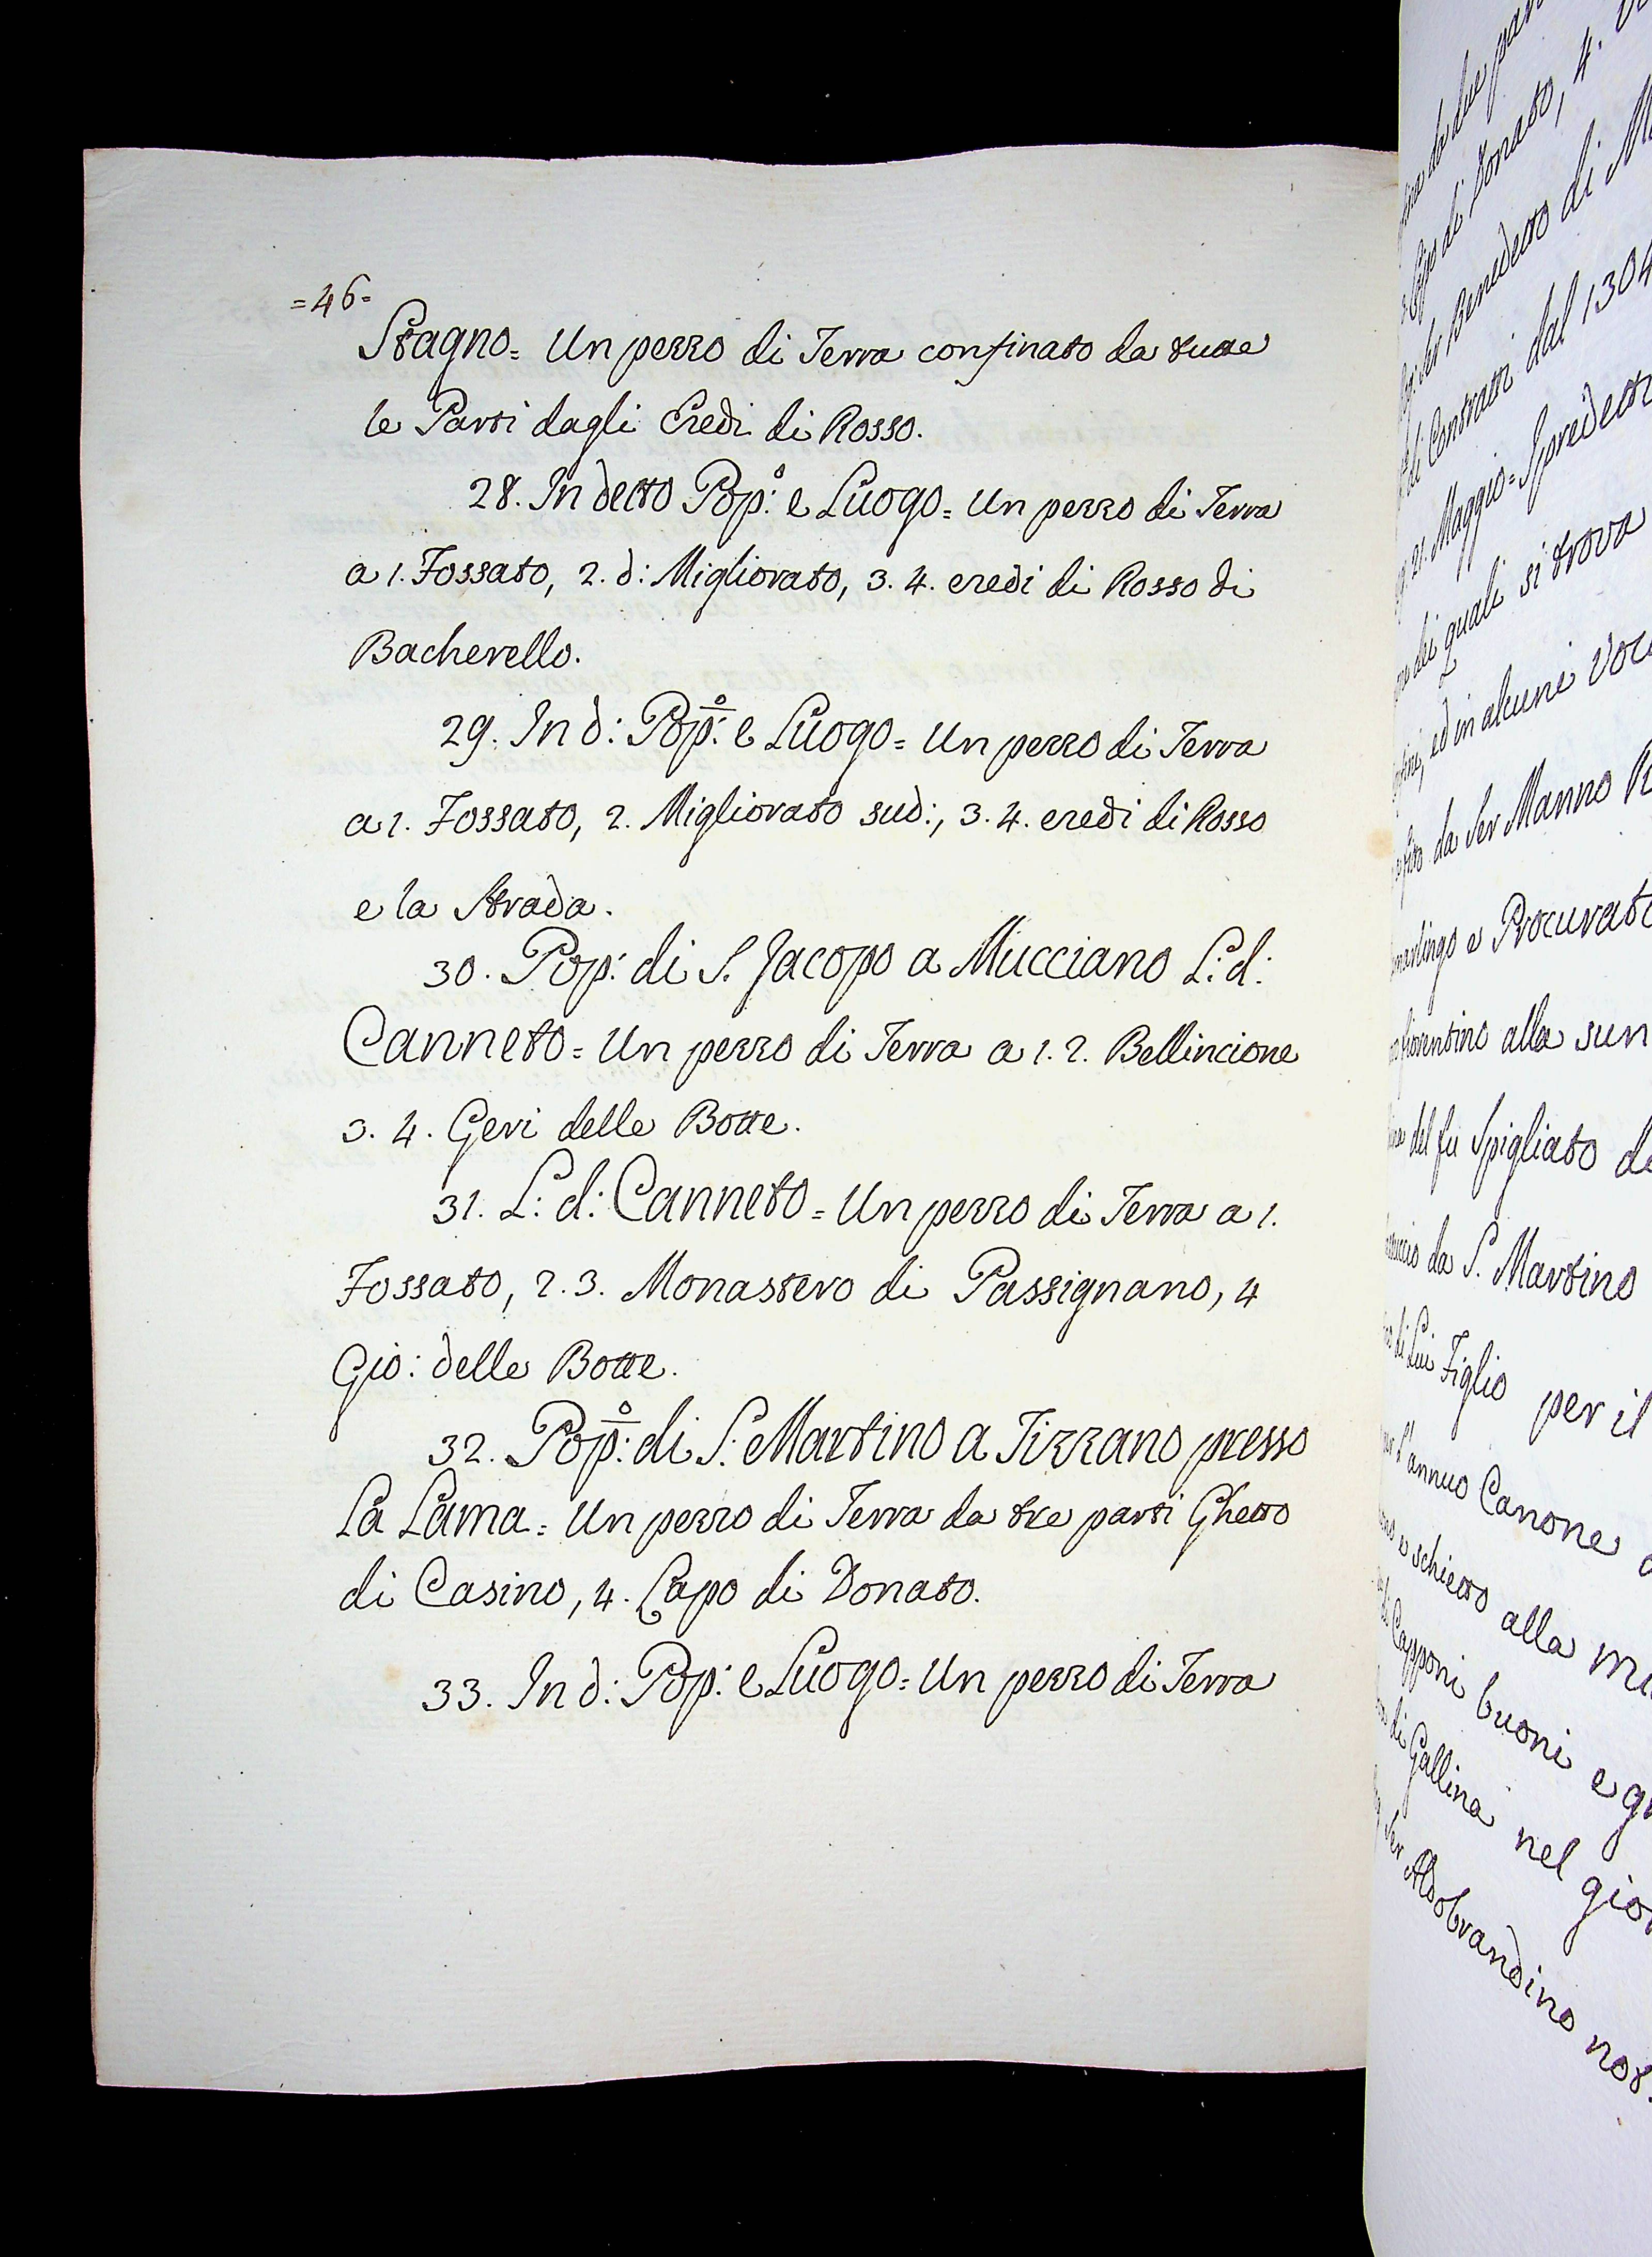 =46=
Stagno= Un pezzo di Terra confinato da tutte
le Parti dagli Eredi di Rosso.
28. In detto Pop:º e Luogo= Un pezzo di Terra
a 1. Fossato, 2. d: Migliorato, 3. 4. eredi di Rosso di
Bacherello.
29. In d: Pop:º e Luogo= Un pezzo di Terra
a 1. Fossato, 2. Migliorato sud:, 3. 4. eredi di Rosso
e la Strada.
30. Pop: di S. Jacopo a Mucciano L: d:
Canneto= Un pezzo di Terra a 1. 2. Bellincione
3. 4. Geri delle Botte.
31. L: d: Canneto= Un pezzo di Terra a 1.
Fossato, 2. 3. Monastero di Passignano, 4
Gio: delle Botte.
32. Pop:º di S. Martino a Tizzano presso
La Lama= Un pezzo di Terra da tre parti Ghetto
di Casino, 4. Lapo di Donato.
33. In d: Pop: e Luogo= Un pezzo di Terra
da due
di Donato, 4.
Ser Benedetto di
di Contratti dal 1304
21. Maggio= Spredetti
dei quali si trova
ed in alcuni
da Ser Manno
e Procurato
fiorentino alla sun
del fu Spigliato
da S. Martino
di Lui Figlio per il
annuo Canone
e schietto alla
Capponi buoni e
di Gallina nel
Ser Aldobrandino